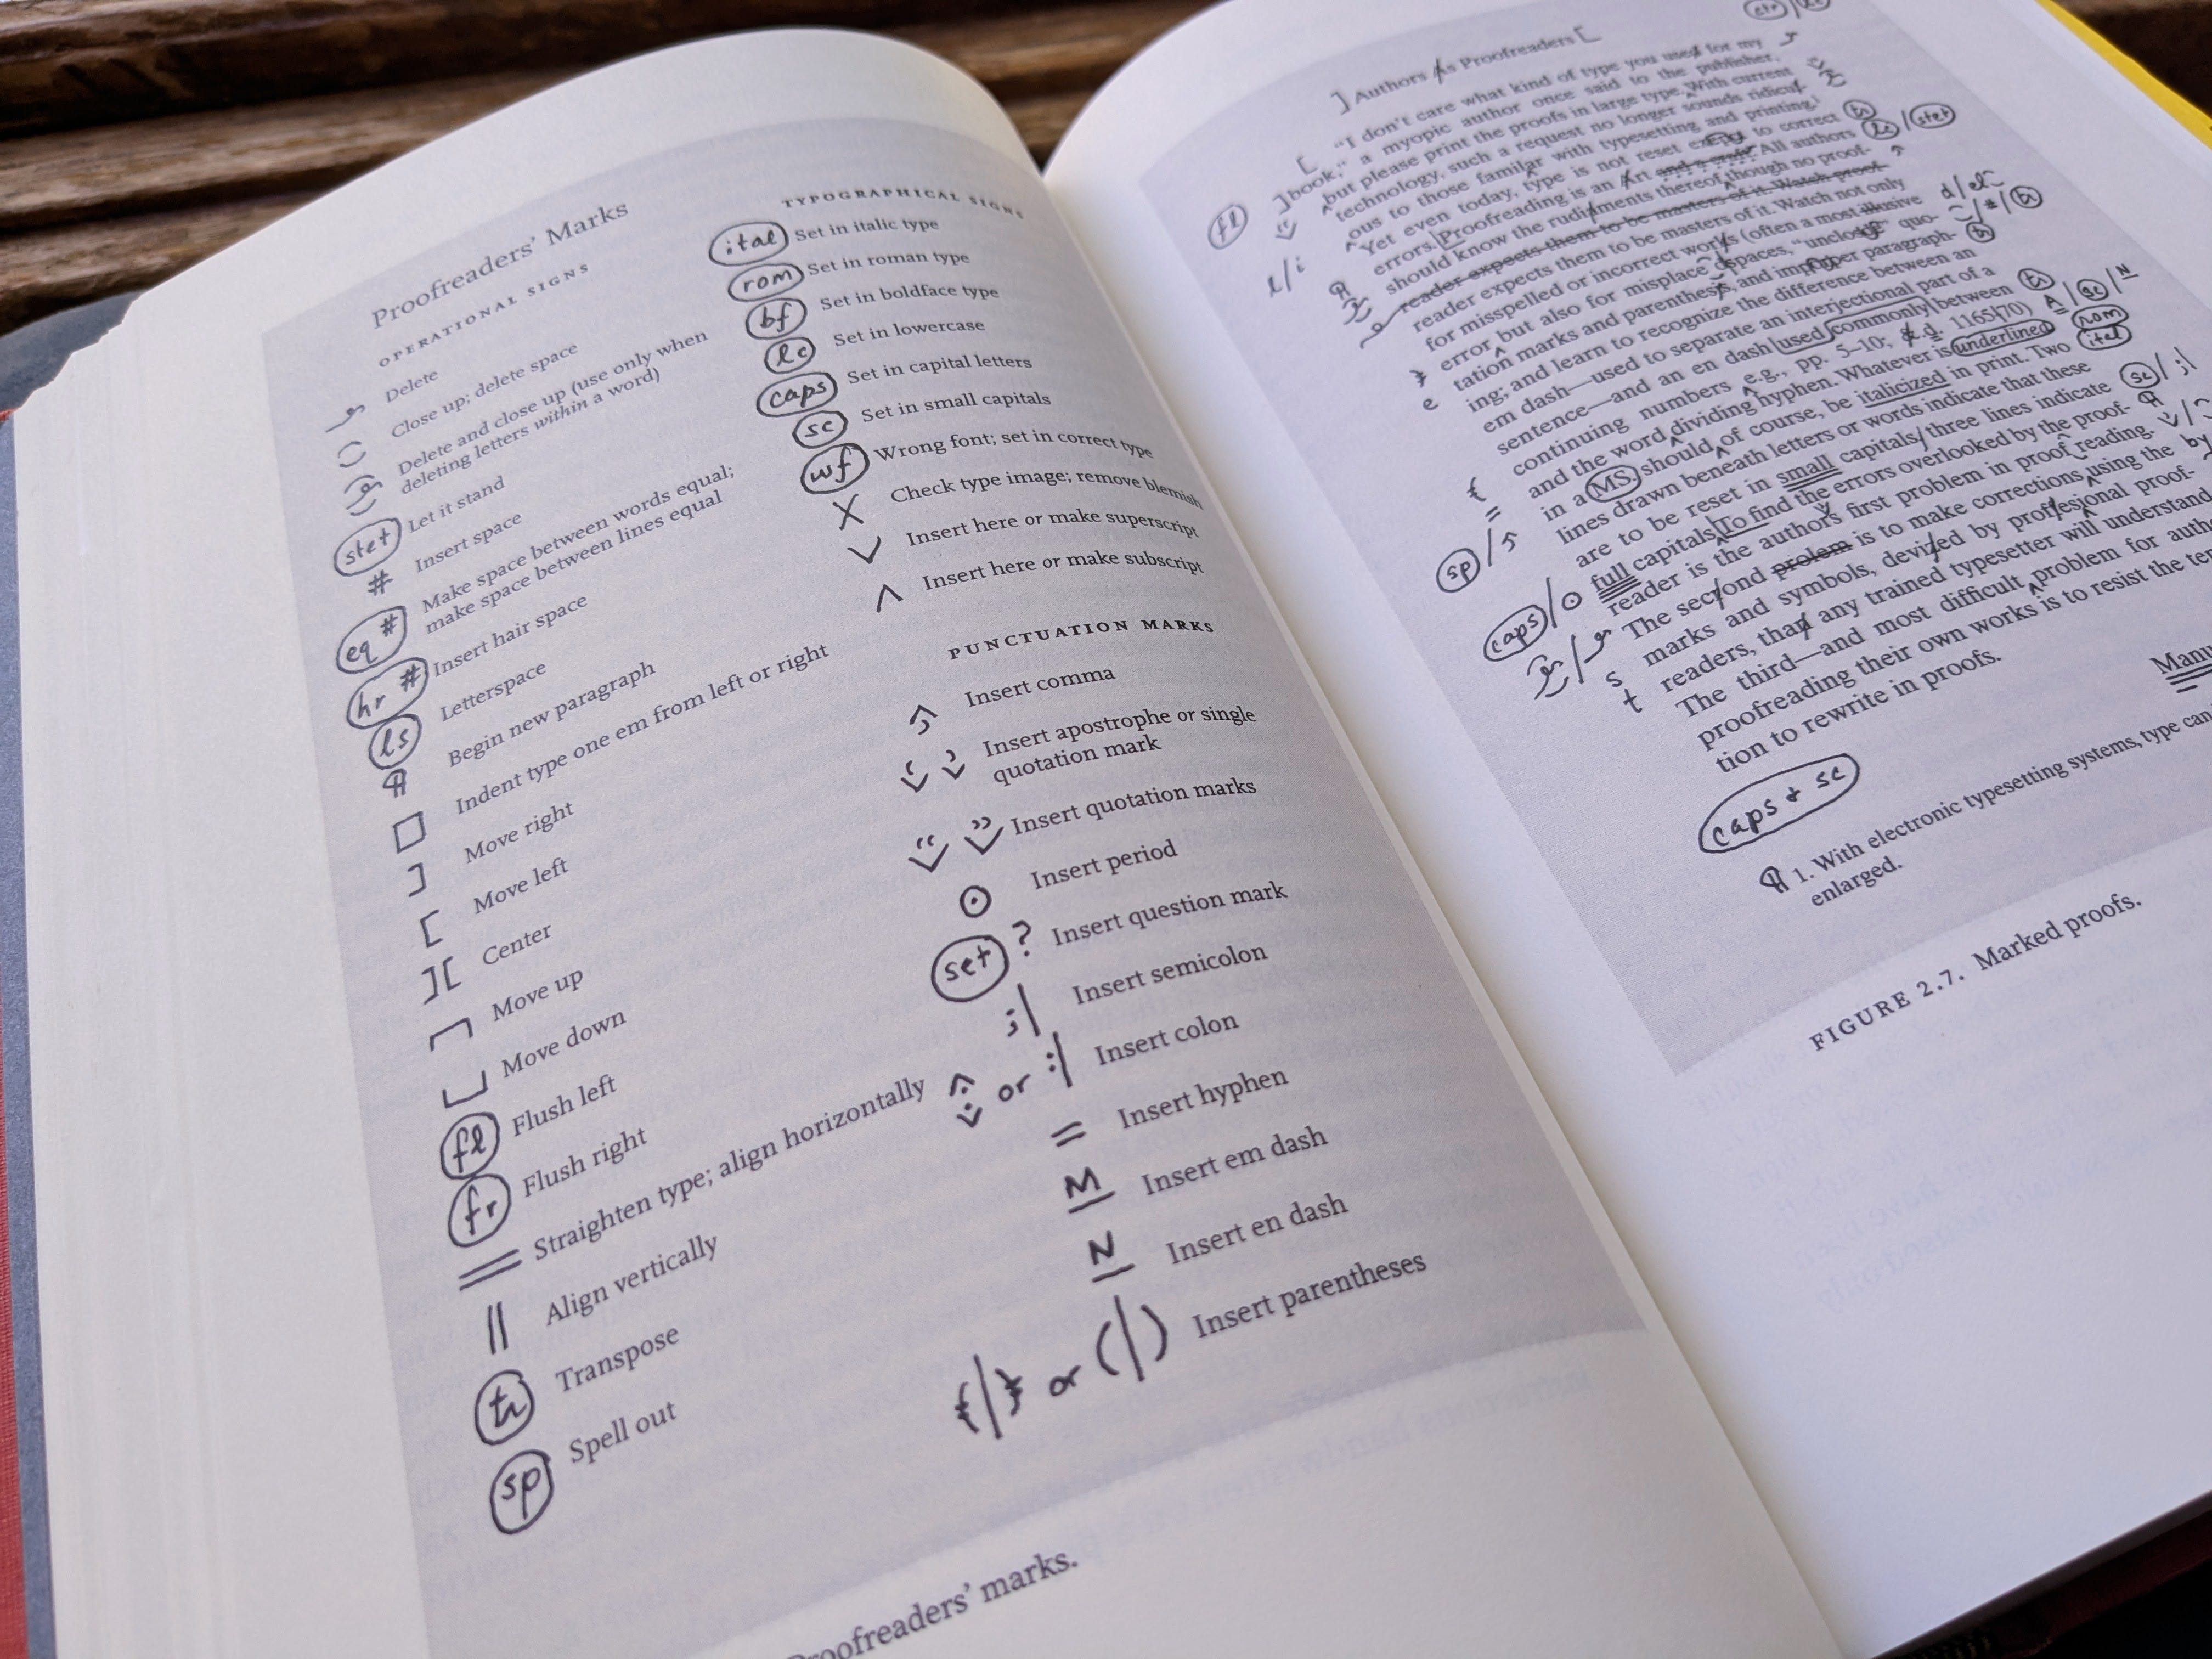 Proofreaders' Marks
OPERATIONAL SIGNS
Delete
Close up; delete space
Delete and close up (use only when
deleting letters within a word)
stet Let it stand
# Insert space
eq # Make space between words equal;
make space between lines equal
hr # Insert hair space
ls Letterspace
¶ Begin new paragraph
□ Indent type one em from left or right
] Move right
[ Move left
][ Center
Move up
Move down
fl Flush left
fr Flush right
= Straighten type; align horizontally
|| Align vertically
tr Transpose
sp Spell out
TYPOGRAPHICAL SIGNS
ital Set in italic type
rom Set in roman type
bf Set in boldface type
lc Set in lowercase
caps Set in capital letters
sc Set in small capitals
wf Wrong font; set in correct type
X Check type image; remove blemish
∨ Insert here or make superscript
∧ Insert here or make subscript
PUNCTUATION MARKS
Insert comma
Insert apostrophe or single
quotation mark
Insert quotation marks
⊙ Insert period
set ? Insert question mark
;| Insert semicolon
or :| Insert colon
= Insert hyphen
M Insert em dash
N Insert en dash
or (|) Insert parentheses
Proofreaders' marks.
] Authors As Proofreaders [
[ "I don't care what kind of type you used for my
fl ] book," a myopic author once said to the publisher,
but please print the proofs in large type. With current
technology, such a request no longer sounds ridicul-
l/i ous to those familar with typesetting and printing.
Yet even today, type is not reset to correct tr
¶ errors. Proofreading is an Art and a craft. All authors lc/stet
should know the rudiments thereof though no proof-
reader expects them to be masters of it. Watch proof-
reader expects them to be masters of it. Watch not only
for misspelled or incorrect works (often a most illusive d/
error but also for misplace spaces, "unclosde" quo- /#/tr
tation marks and parenthesis, and improper paragraph- tr
e ing; and learn to recognize the difference between an
em dash—used to separate an interjectional part of a
sentence—and an en dash used commonly between tr
continuing numbers e.g., pp. 5–10; 1165 70) /sc/N
and the word dividing hyphen. Whatever is underlined rom
= in a MS. should of course, be italicized in print. Two ital
sp/ lines drawn beneath letters or words indicate that these
are to be reset in small capitals three lines indicate sc/;|
caps/⊙ full capitals To find the errors overlooked by the proof- ¶
reader is the authors first problem in proof reading.
The second prolem is to make corrections using the by
s marks and symbols, devized by proffesional proof-
t readers, than any trained typesetter will understand
The third—and most difficult problem for autho
proofreading their own works is to resist the te
tion to rewrite in proofs.
Manu
caps & sc
¶ 1. With electronic typesetting systems, type can
enlarged.
FIGURE 2.7. Marked proofs.